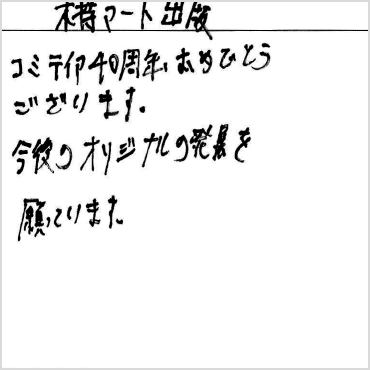 木持アート出版
コミティア40周年、おめでとう
ございます。
今後のオリジナルの発展を
願っています